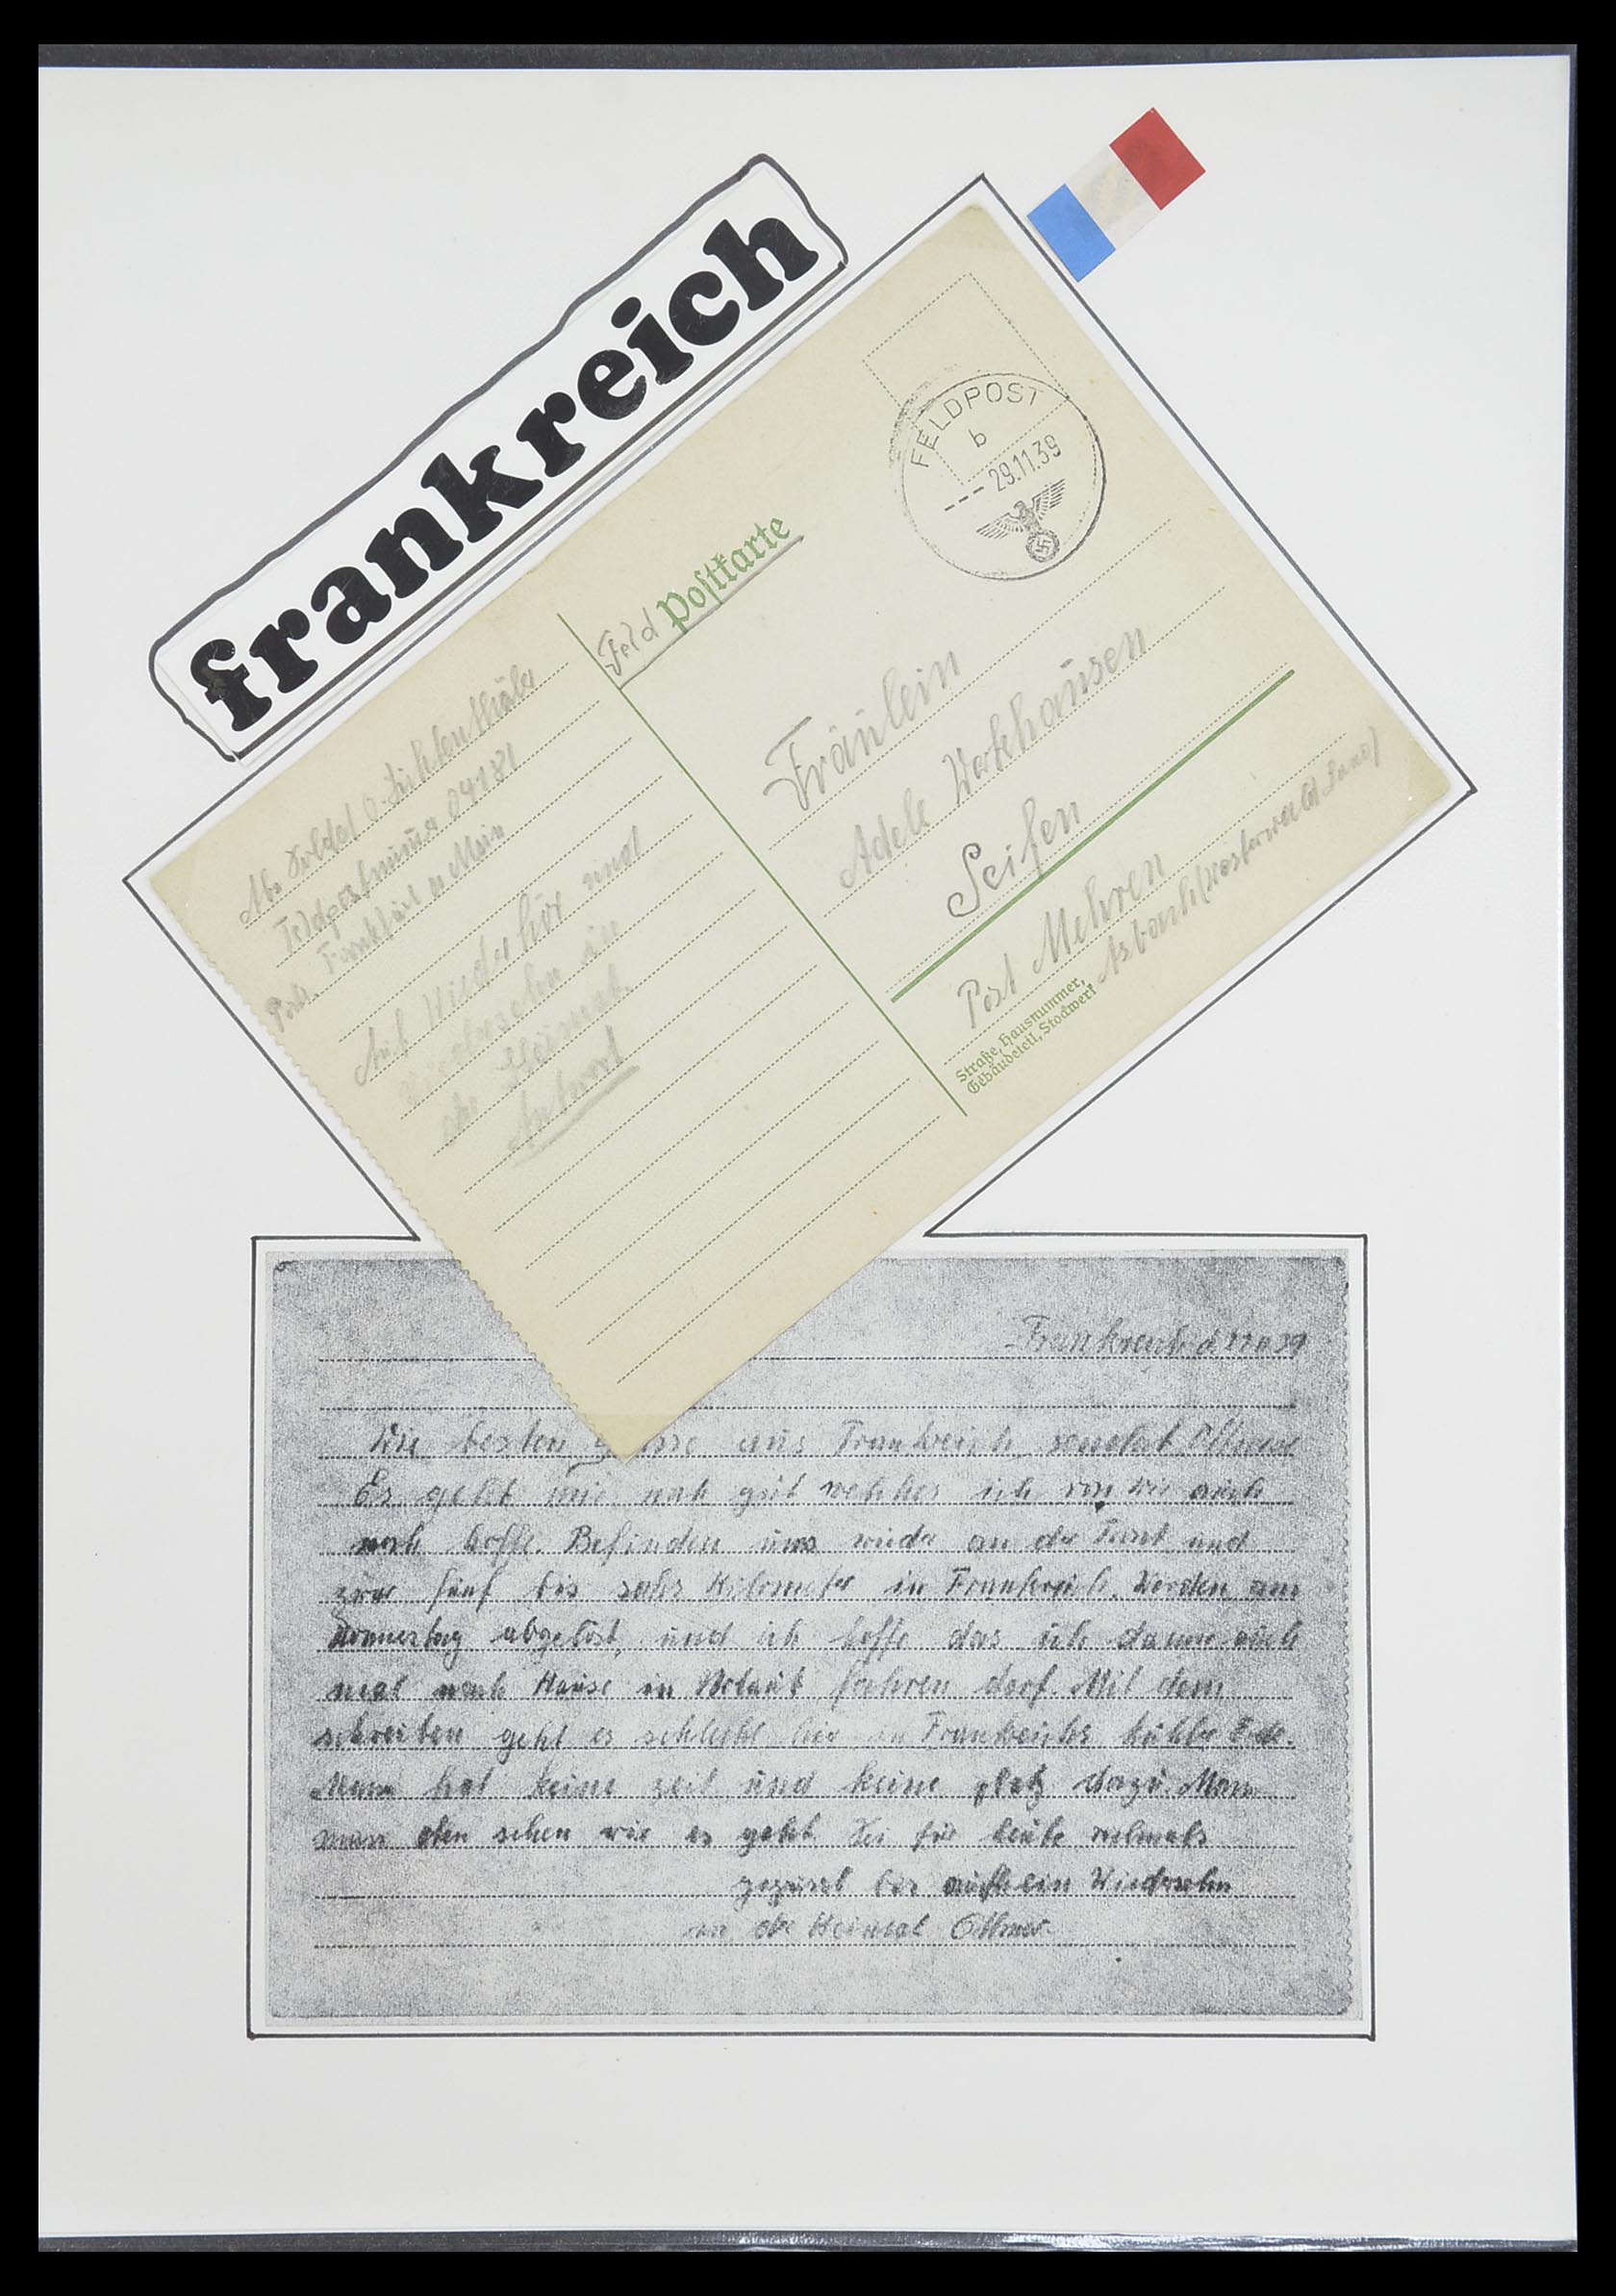 frankreich
FELDPOST
b
--- 29.11.39
Feld Postkarte
Abs. Soldat O.
Feldpostnummer 04181
Frankfurt a Main
Post
Auf Wiederhör und
in
der Heimat.
Antwort
Fräulein
Adele
Seifen
Post Mehren
Asbach (Westerwald Land)
Straße, Hausnummer,
Gebäudeteil, Stockwerk
Frankreich d 27 11 39
Die besten grüsse aus Frankreich sendet Othmar
Es geht mir noch gut welches ich von dir auch
noch hoffe. Befinden uns wieder an der Front und
zwar fünf bis sechs Kilometer in Frankreich. Werden am
Donnerstag abgelöst, und ich hoffe das ich dann auch
mal nach Hause in Urlaub fahren darf. Mit dem
schreiben geht es schlecht hier in Frankreichs kühler Ecke.
Mann hat keine zeit und keine platz dazu. Mann
muss eben sehen wie es geht. Sei für heute vielmals
gegrüsst bis auf ein Wiedersehn
in der Heimat Othmar.